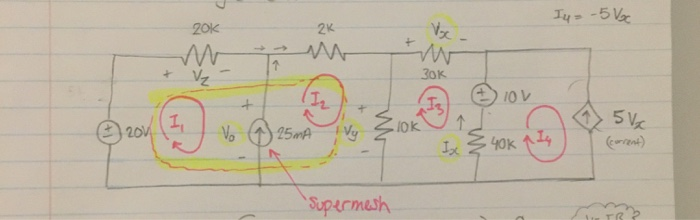 I4 = -5Vx
20K
2K
+ Vx -
+ Vz -
30K
I1
I2
I3
+
+
+
±
10V
± 20V
Vo
25mA
Vy
10K
Ix
40K
I4
5Vx
(current)
-
-
-
Supermesh